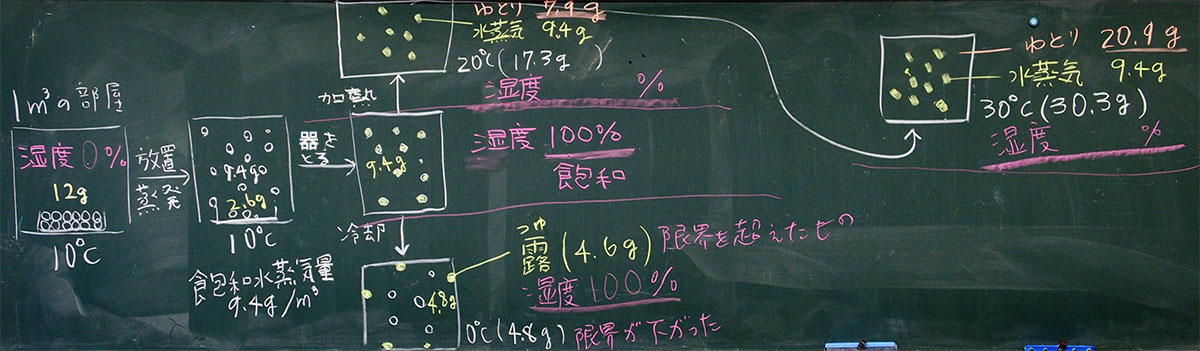 1m³の部屋
湿度0%
12g
10℃
放置
蒸発
9.4g
2.6g
10℃
飽和水蒸気量
9.4g/m³
器を
とる
9.4g
加熱
ゆとり 7.9g
水蒸気 9.4g
20℃(17.3g)
湿度 %
湿度 100%
飽和
冷却
4.8g
つゆ
露(4.6g) 限界を超えたもの
湿度100%
0℃(4.8g) 限界が下がった
ゆとり 20.9g
水蒸気 9.4g
30℃(30.3g)
湿度 %